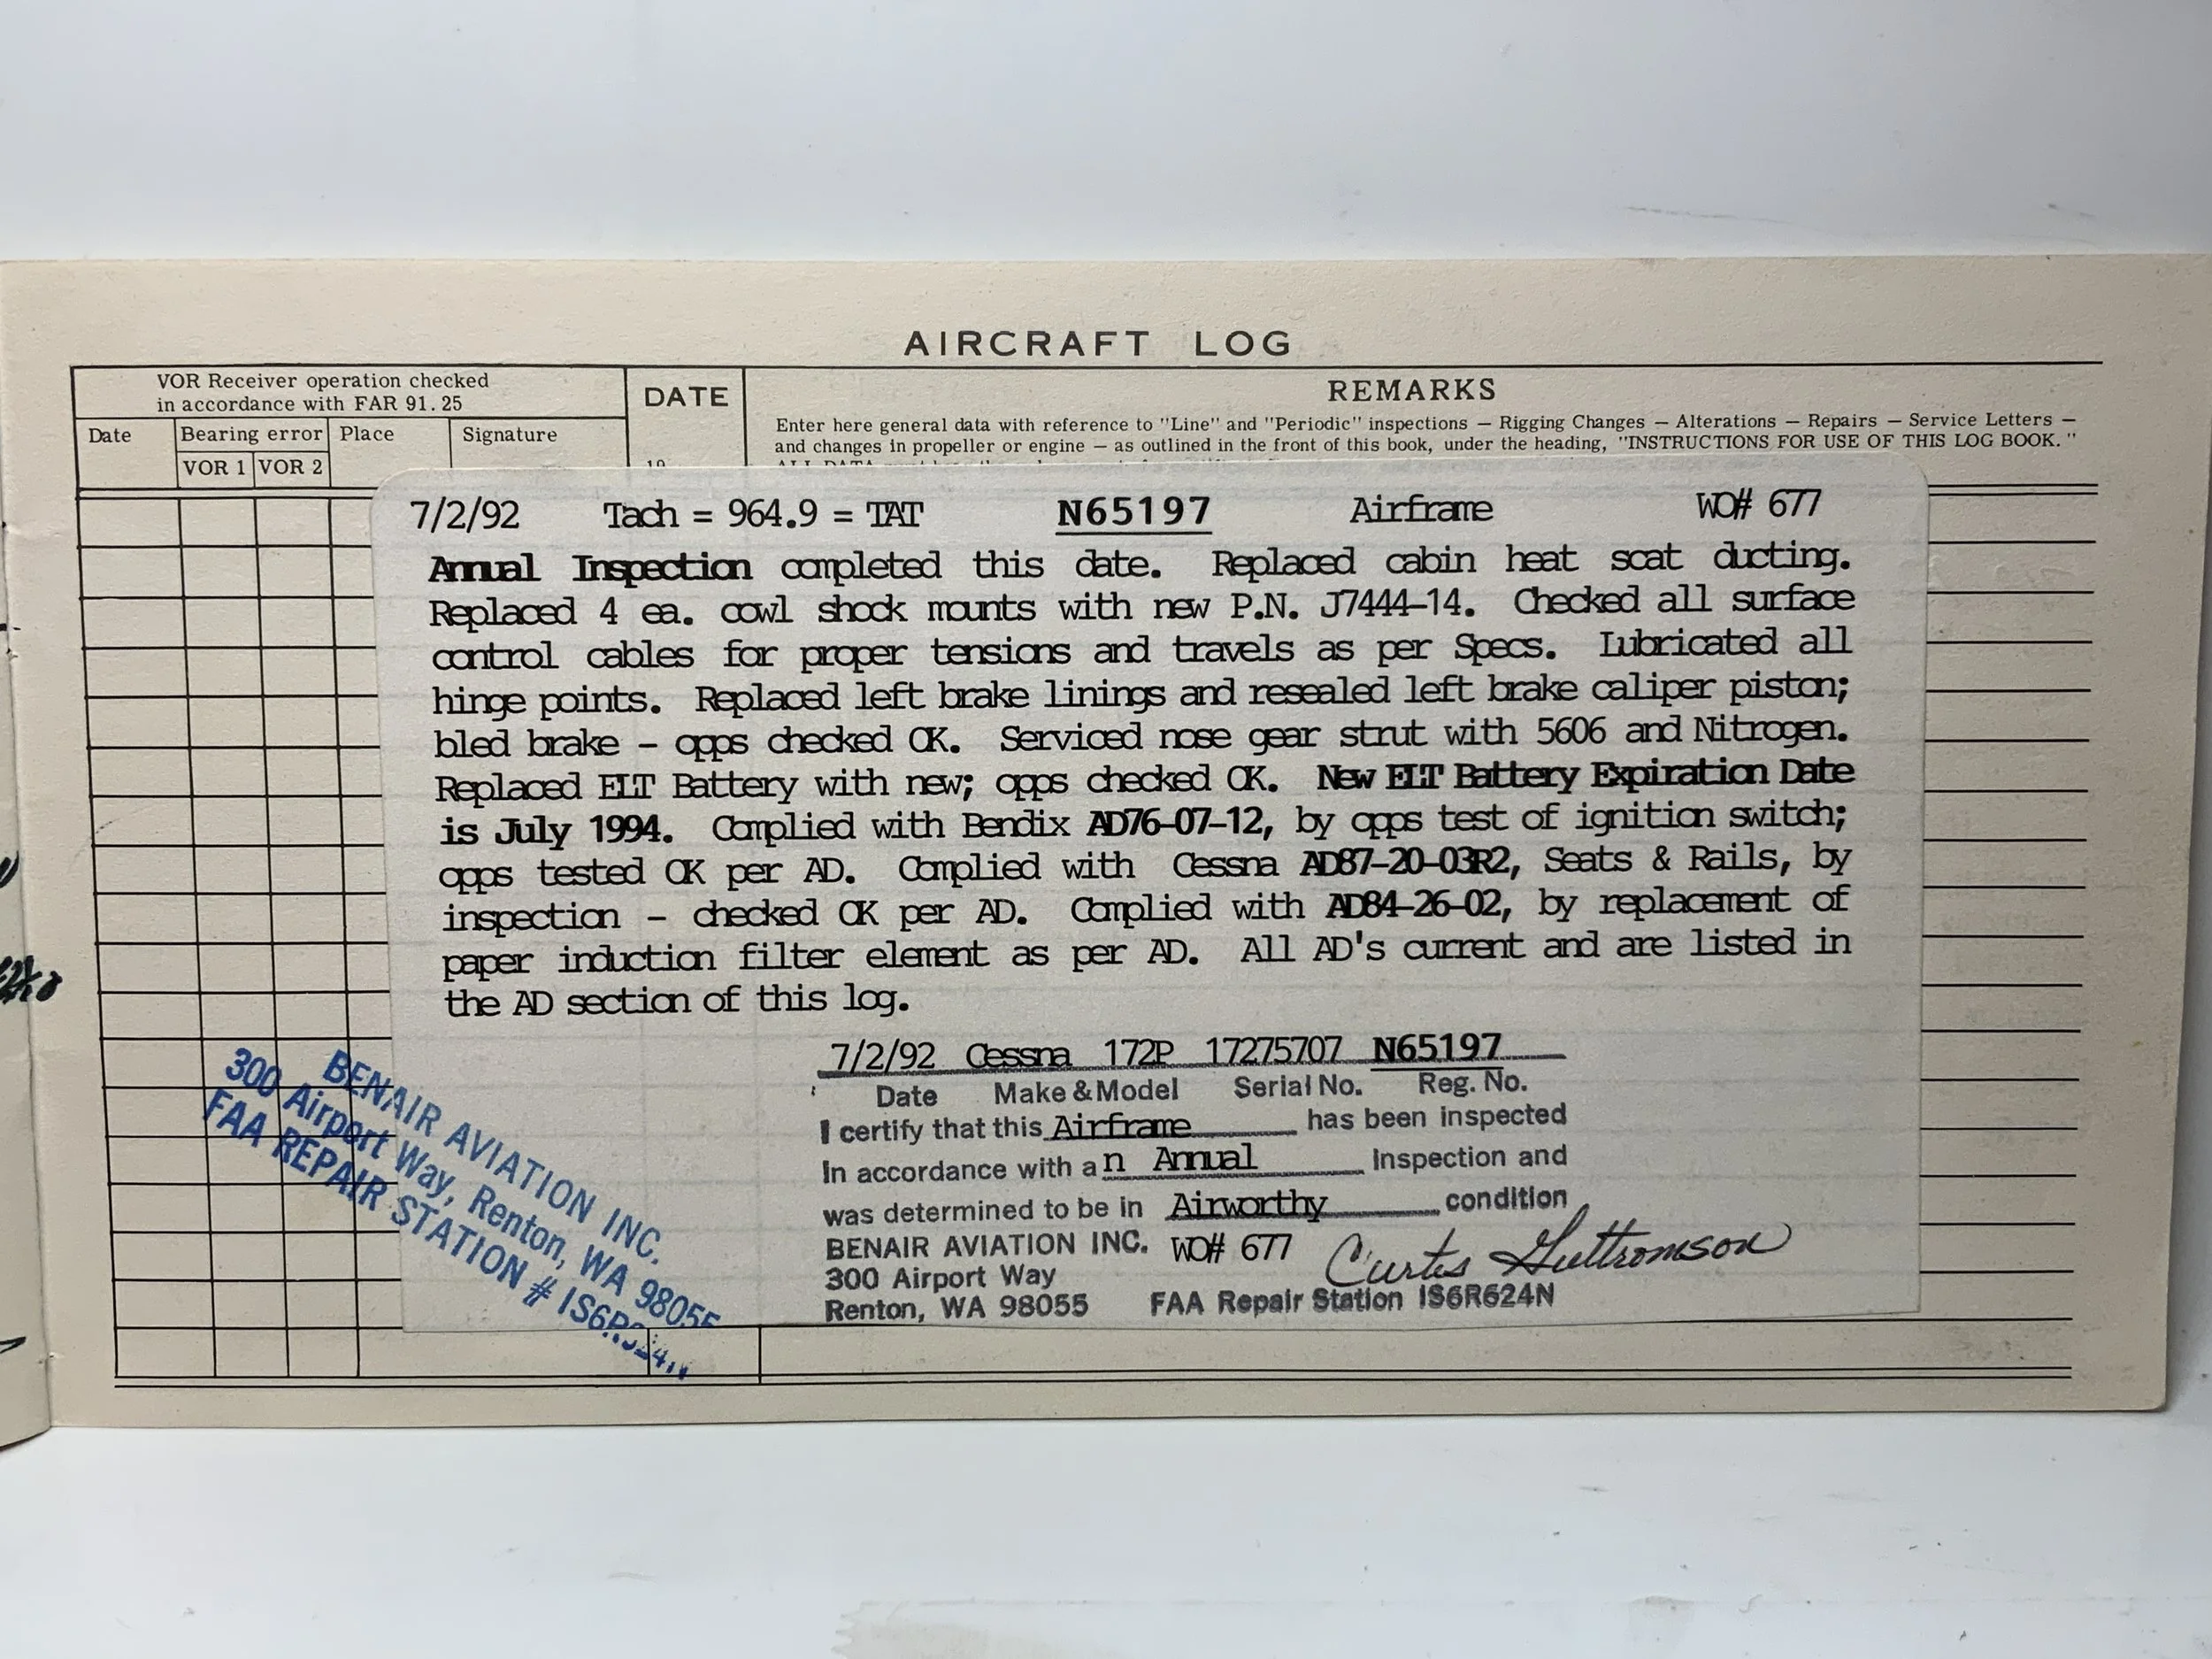 AIRCRAFT LOG
VOR Receiver operation checked
in accordance with FAR 91.25
DATE
REMARKS
Enter here general data with reference to "Line" and "Periodic" inspections — Rigging Changes — Alterations — Repairs — Service Letters —
and changes in propeller or engine — as outlined in the front of this book, under the heading, "INSTRUCTIONS FOR USE OF THIS LOG BOOK."
Date Bearing error Place Signature
VOR 1 VOR 2
19
7/2/92 Tach = 964.9 = TAT N65197 Airframe WO# 677
Annual Inspection completed this date. Replaced cabin heat scat ducting.
Replaced 4 ea. cowl shock mounts with new P.N. J7444-14. Checked all surface
control cables for proper tensions and travels as per Specs. Lubricated all
hinge points. Replaced left brake linings and resealed left brake caliper piston;
bled brake - opps checked OK. Serviced nose gear strut with 5606 and Nitrogen.
Replaced ELT Battery with new; opps checked OK. New ELT Battery Expiration Date
is July 1994. Complied with Bendix AD76-07-12, by opps test of ignition switch;
opps tested OK per AD. Complied with Cessna AD87-20-03R2, Seats & Rails, by
inspection - checked OK per AD. Complied with AD84-26-02, by replacement of
paper induction filter element as per AD. All AD's current and are listed in
the AD section of this log.
7/2/92 Cessna 172P 17275707 N65197
Date Make & Model Serial No. Reg. No.
I certify that this Airframe has been inspected
In accordance with an Annual Inspection and
was determined to be in Airworthy condition
BENAIR AVIATION INC. WO# 677 Curtis Guttromson
300 Airport Way
Renton, WA 98055 FAA Repair Station IS6R624N
BENAIR AVIATION INC.
300 Airport Way, Renton, WA 98055
FAA REPAIR STATION #